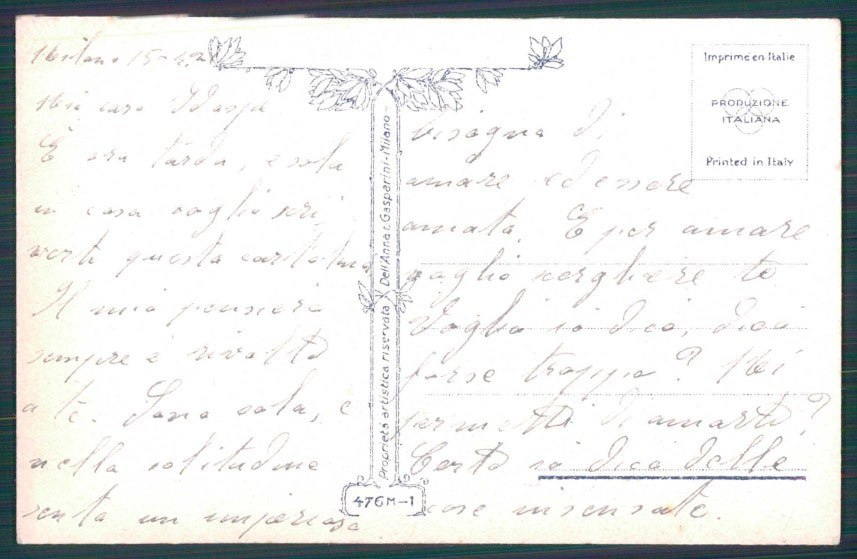 Milano 15-4-2
Mia cara
È ora tarda, e sola
in casa voglio scri
verti questa cartolina
Il mio pensiero
sempre è rivolto
a te. Sono sola, e
nella solitudine
sento un imperioso
bisogno di
amare ed essere
amata. E per amare
voglio scegliere te
Voglio io dico, dico
forse troppo? Mi
permetti di amarti?
Certo io dico delle
cose insensate.
Proprietà artistica riservata Dell'Anna e Gasparini-Milano
476M-1
Imprimé en Italie
PRODUZIONE
ITALIANA
Printed in Italy